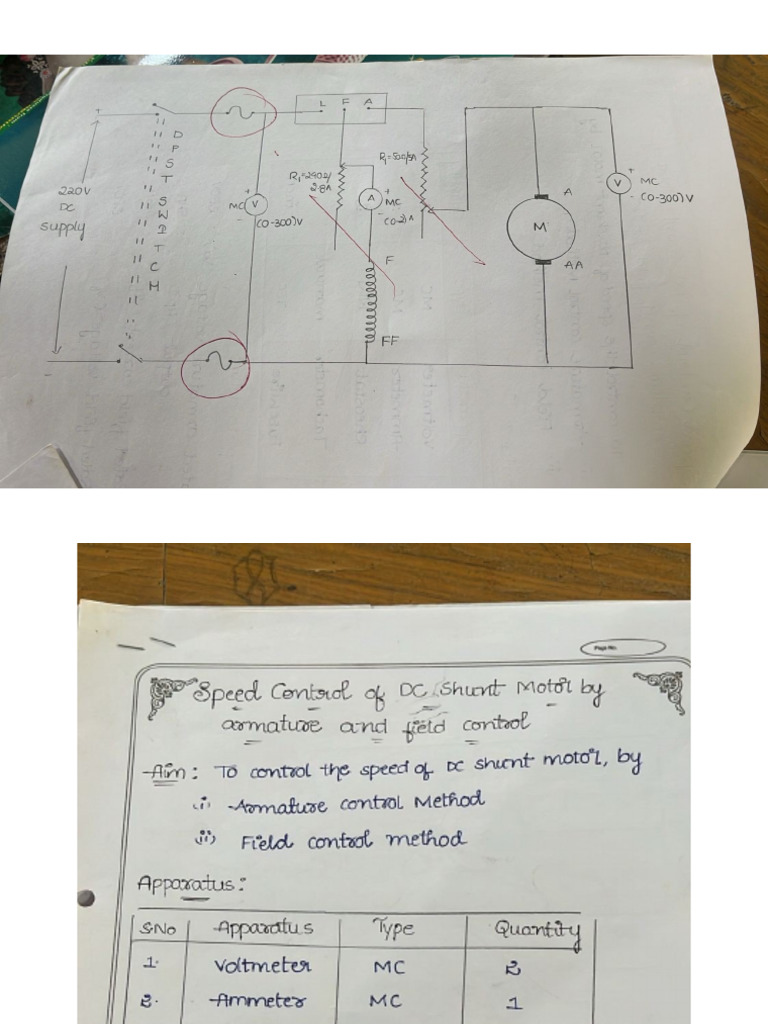 L F A
+
DPST SWITCH
220V
DC
Supply
-
+
MC V
(0-300)V
R1=290Ω/
2.8A
+
A MC
- (0-2)A
R1=50Ω/5A
F
FF
A
M
AA
+
V MC
- (0-300)V
Page No.
Speed Control of DC Shunt Motor by
armature and field control
Aim: To control the speed of DC shunt motor, by
(i) Armature control Method
(ii) Field control method
Apparatus:
S.No Apparatus Type Quantity
1. Voltmeter MC 2
2. Ammeter MC 1